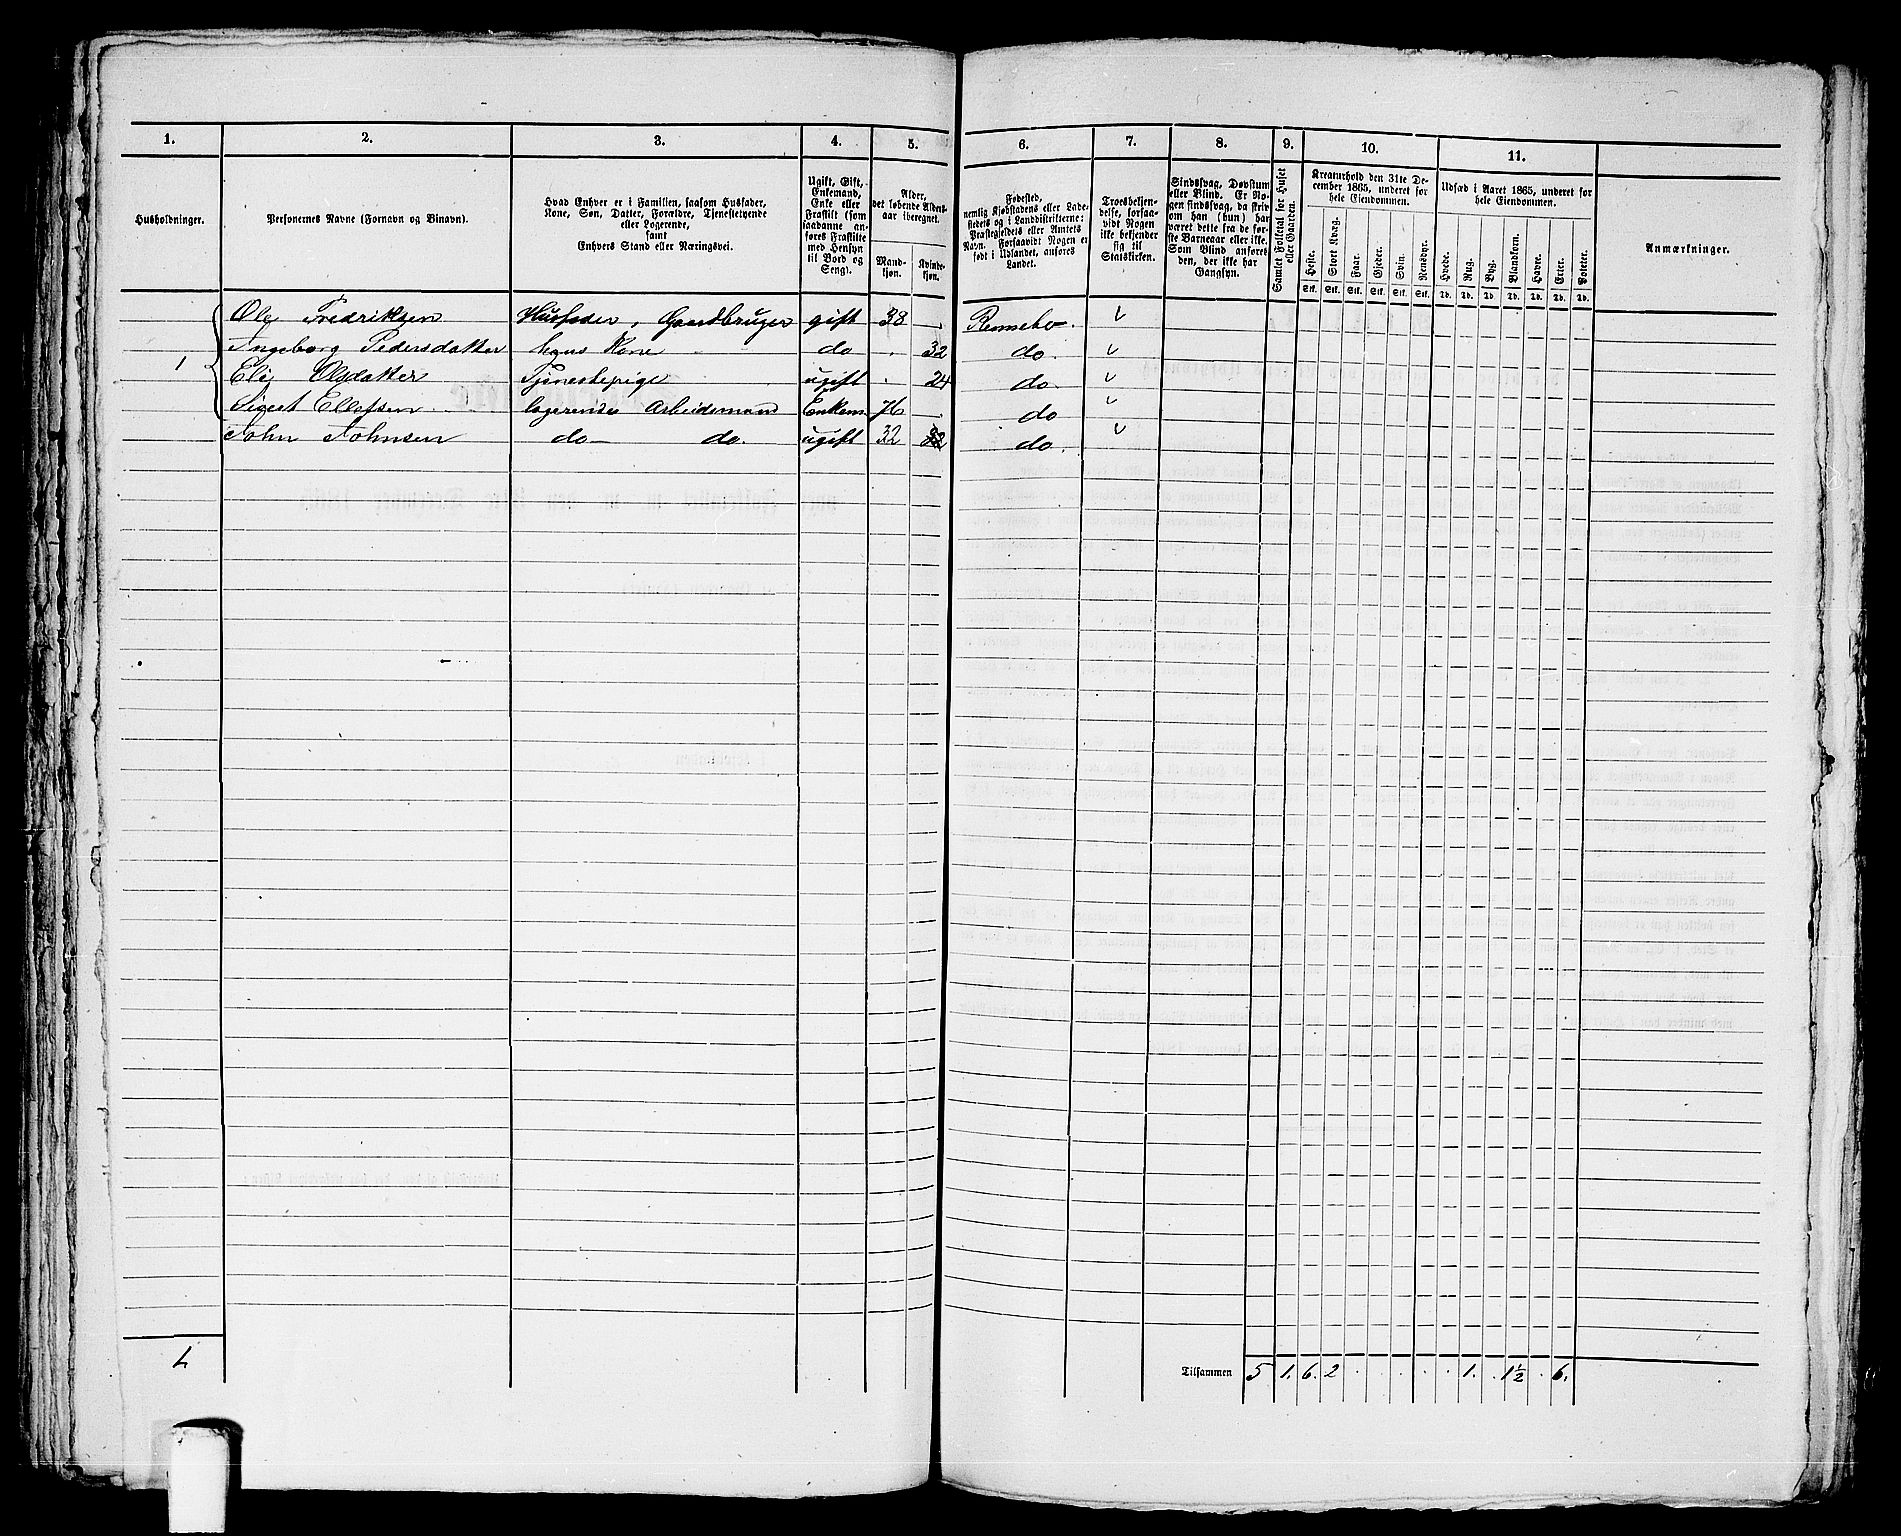 1. 2. 3. 4. 5. 6. 7. 8. 9. 10. 11.
Husholdninger.
Personernes Navne (Fornavn og Binavn).
Hvad Enhver er i Familien, saasom Husfader,
Kone, Søn, Datter, Forældre, Tjenestetyende
eller Logerende,
samt
Enhvers Stand eller Næringsvei.
Ugift, Gift,
Enkemand,
Enke eller
Fraskilt (som
saadanne an-
føres Fraskilte
med Hensyn
til Bord og
Seng).
Alder,
det løbende Alders-
aar iberegnet.
Mand-
kjøn.
Kvinde-
kjøn.
Fødested,
nemlig Kjøbstadens eller Lade-
stedets og i Landdistrikterne:
Præstegjeldets eller Amtets
Navn. Forsaavidt Nogen er
født i Udlandet, anføres
Landet.
Troesbekjen-
delse, forsaa-
vidt Nogen
ikke bekjender
sig til
Statskirken.
Sindssvag, Døvstum
eller Blind. Er No-
gen sindssvag, da skriv
om han (hun) har
været dette fra de før-
ste Barneaar eller ikke.
Som Blind anføres
den, der ikke har
Gangsyn.
Samlet Folketal for Huset
eller Gaarden.
Kreaturhold den 31te De-
cember 1865, underet for
hele Eiendommen.
Heste. Stort Kvæg. Faar. Gjeder. Svin. Rensdyr.
Stk. Stk. Stk. Stk. Stk. Stk.
Udsæd i Aaret 1865, underet for
hele Eiendommen.
Hvede. Rug. Byg. Blandkorn. Havre. Erter. Poteter.
Td. Td. Td. Td. Td. Td. Td.
Anmærkninger.
Ole Fredriksen Husfader, Gaardbruger gift 38 Rennebo.
1 Ingeborg Pedersdatter hans Kone do 32 do.
Eli Olsdatter Tjenestepige ugift 24 do
Sivert Ellefsen logerende Arbeidsmand Enkem 76 do
John Johnsen do do. ugift 32 do.
1 Tilsammen 5 1. 6. 2 1. 1½ 6.